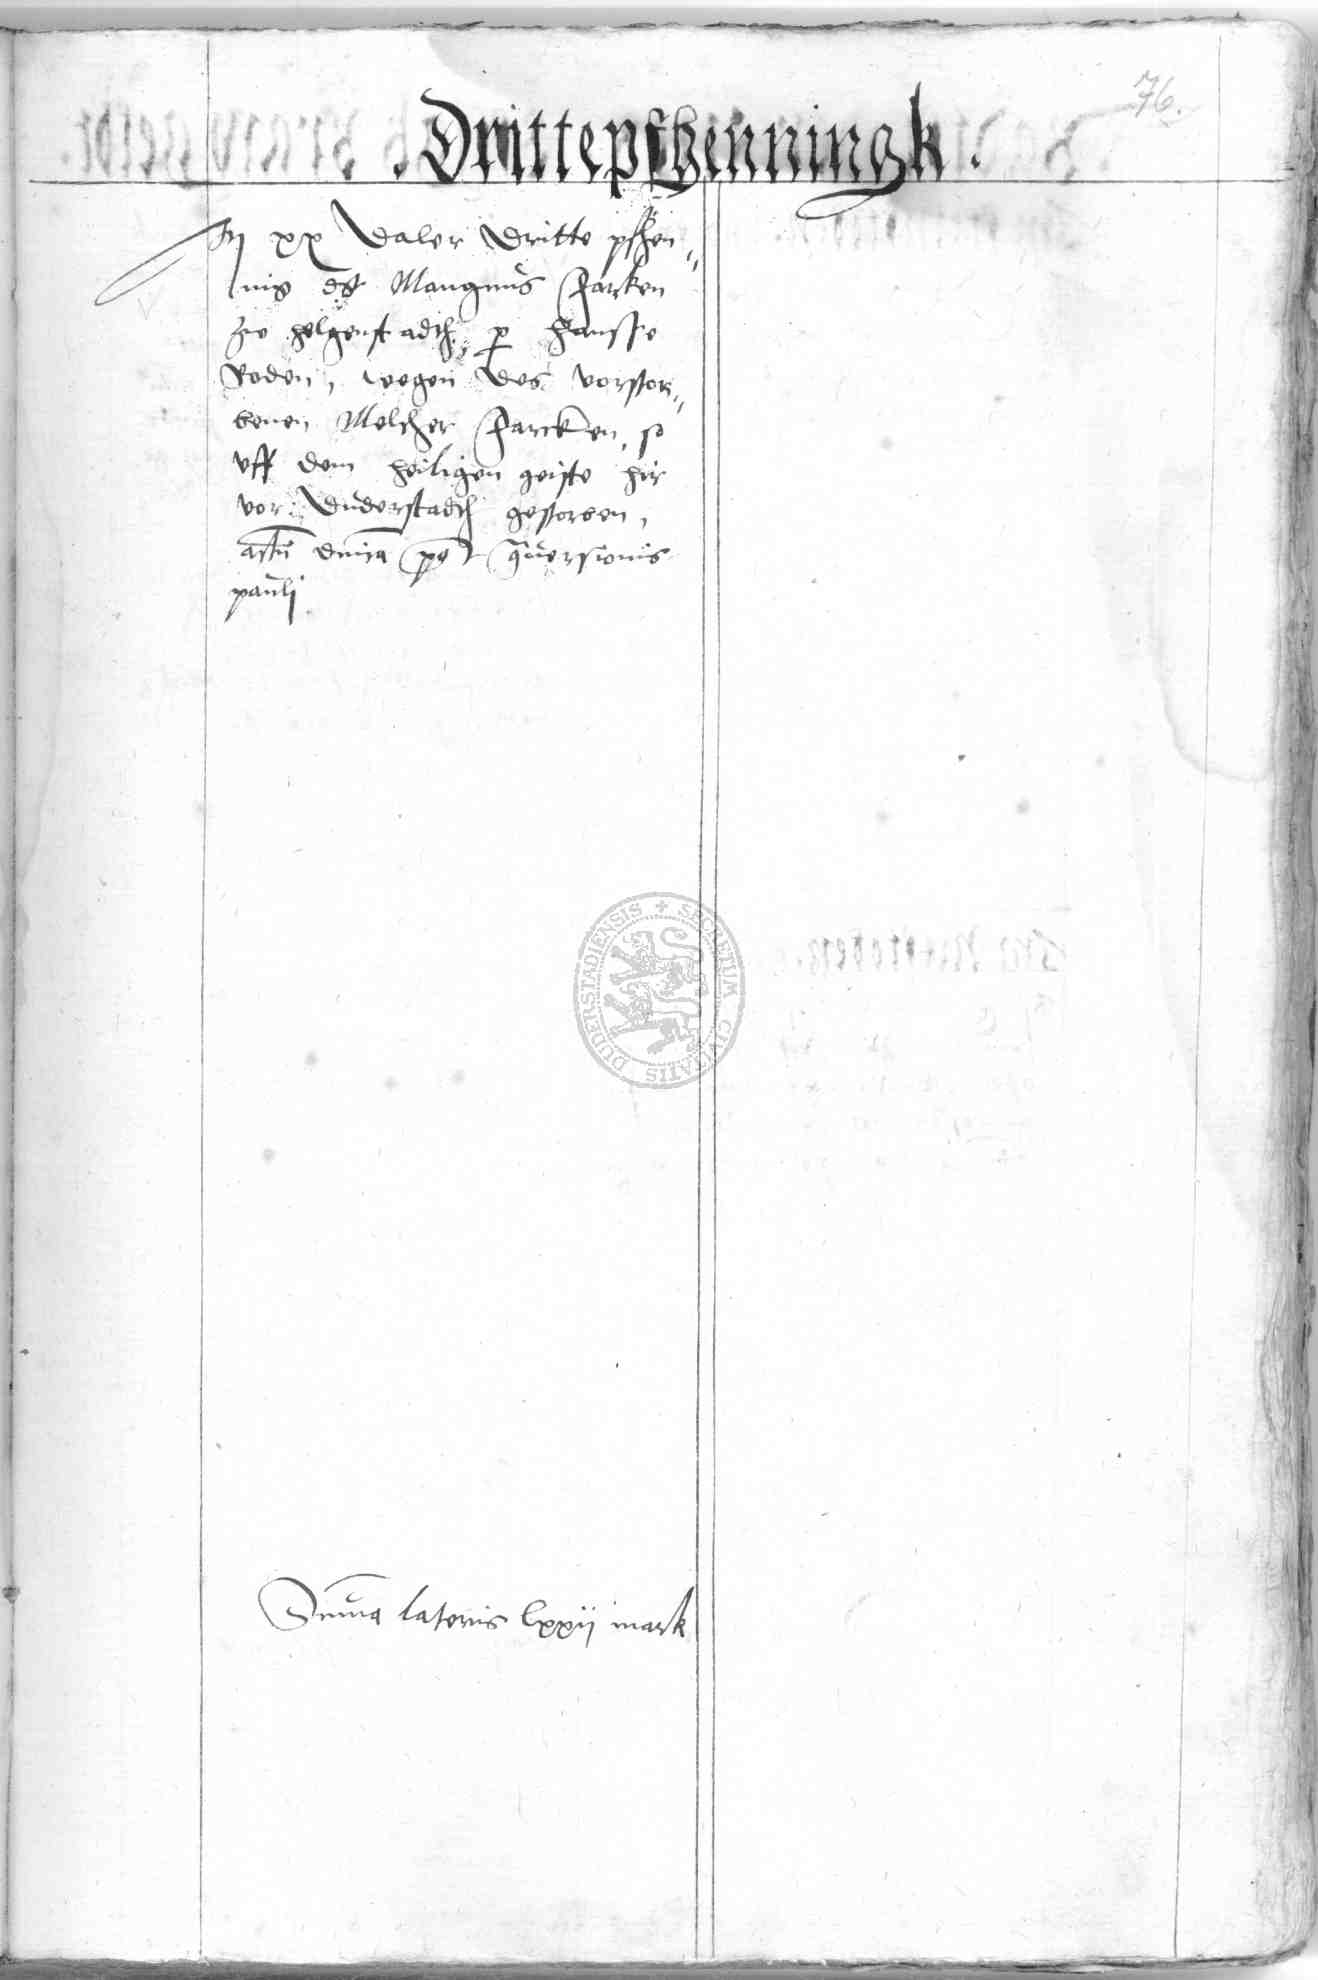 76.
. Drittepfhenningk .
xx daler dritte pfhen„
nig Mangnus Farken
zu helgenstadth, p hansse
Roden, wegen des vorstor„
benen Melcher Farcken, so
vff dem heiligen geiste hir
vor Duderstadth gestorben,
actu dnica po qversionis
pauli
Suma lateris lxxij mark
SECRETUM CIVITATIS DUDERSTADIENSIS